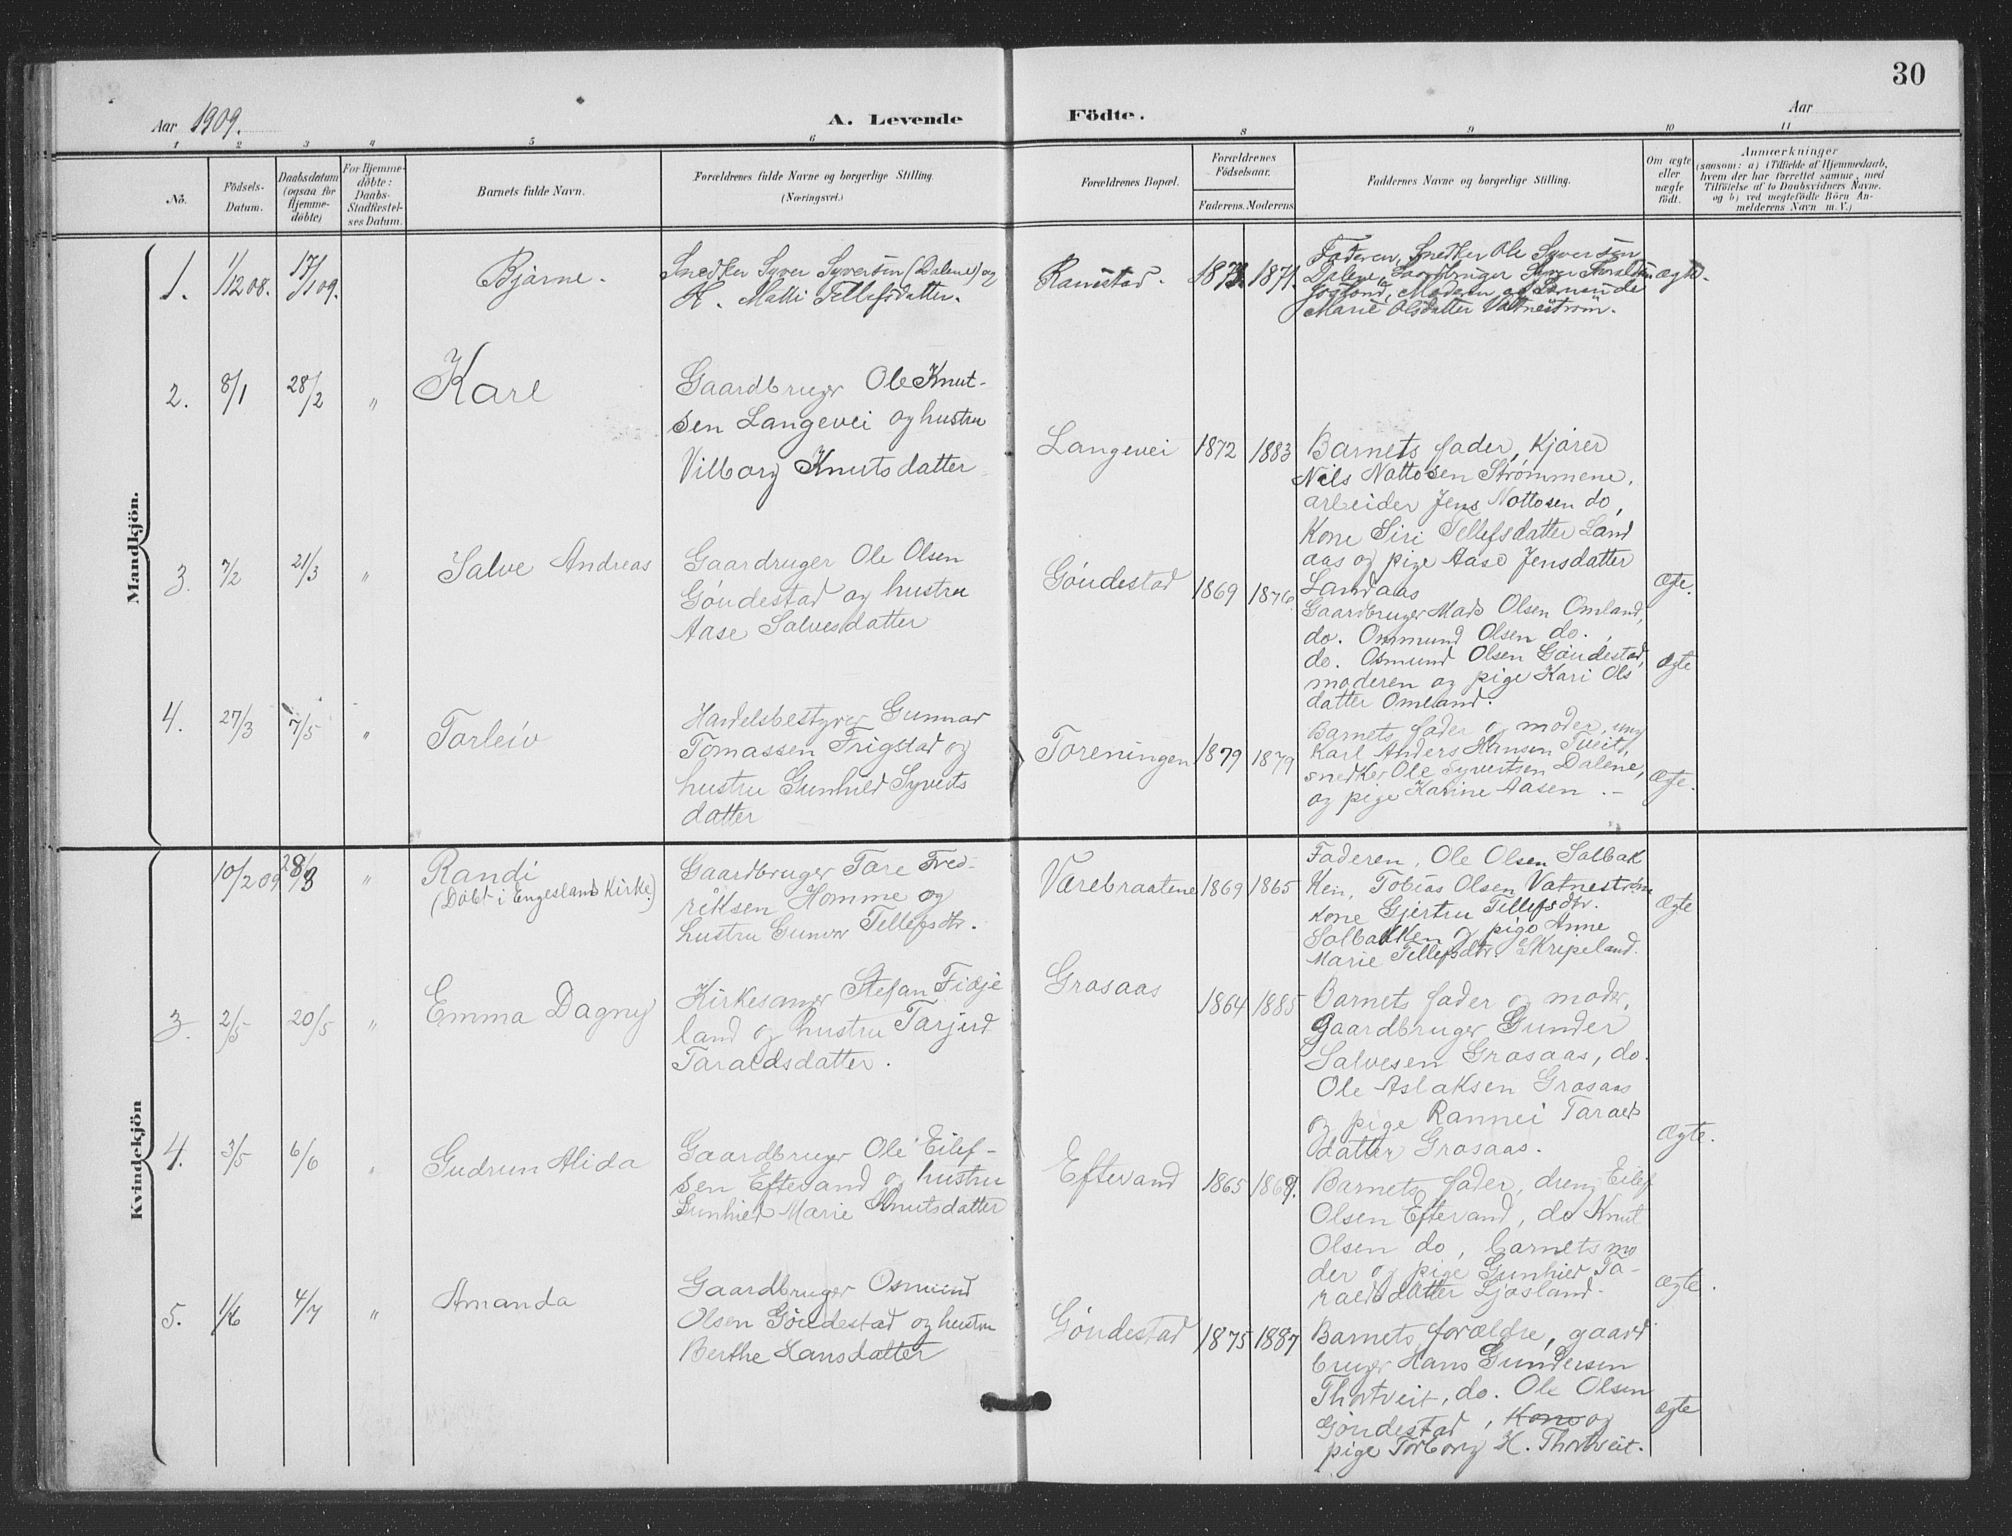 30
Aar 1909.
A. Levende Födte.
Aar
1 2 3 4 5 6 8 9 10 11
No.
Födsels-
Datum.
Daabsdatum
(ogsaa for
Hjemme-
döbte)
For Hjemme-
döbte:
Daabs-
Stadfæstel-
ses Datum.
Barnets fulde Navn.
Forældrenes fulde Navne og borgerlige Stilling.
(Næringsvei.)
Forældrenes Bopæl.
Forældrenes
Födselsaar.
Faderens. Moderens.
Faddernes Navne og borgerlige Stilling.
Om ægte
eller
uægte
födt.
Anmærkninger
(saasom: a) i Tilfælde af Hjemmedaab,
hvem der har forrettet samme, med
Tilföielse af to Daabsvidners Navne.
og b) ved uegtefödte Börn An-
melderens Navn m. V.)
Mandkjön.
1. 1/12 08. 17/1 09. Bjarne.
Snedker Syver Syversen (Dalene) og
H. Malli Tellefsdatter.
Ramstad. 1871.
Faderen, Snedker Ole Syversen
Dalene, Gaardbruger
Moderen og
Marie Olsdatter Vatneström.
ægte.
2. 8/1 28/2 " Karl
Gaardbruger Ole Knut-
sen Langevei og hustru
Vilborg Knutsdatter
Langevei 1872 1883
Barnets fader, Kjører
Nils Nottosen Strømmene,
arbeider Jens Nottosen do,
Kone Siri Tellefsdatter Land
aas og pige Aase Jensdatter
Landaas
ægte.
3. 7/2 21/3 " Salve Andreas
Gaardruger Ole Olsen
Göudestad og hustru
Aase Salvesdatter
Göudestad 1869 1876.
Gaardbruger Mads Olsen Omland,
do. Ommund Olsen do.,
do. Osmund Olsen Göudestad,
moderen og pige Kari Ols
datter Omland.
ægte
4. 27/3 7/5 " Torleiv
Handelsbestyrer Gunnar
Tomassen Frigstad og
hustru Gunhild Syverts
datter
Foreningen 1879 1879
Barnets fader og moder, ung
Karl Anders Hansen Tveit,
snedker Ole Syvertsen Dalene,
og pige Karine Aasen.-
ægte.
Kvindekjön
10/2 09 28/3 " Randi
(Döbt i Engesland Kirke.)
Gaardbruger Tore Fred-
riksen Homme og
hustru Gunvor Tellefsdtr.
Værebraatene 1869 1865
Faderen, Ole Olsen Solbak
Ken, Tobias Olsen Vatneström
Kone Gjertru Tellefsdtr.
Solbakken og pige Anne
Marie Tellefsdtr. Skripeland.
ægte
3. 2/5 20/5 " Emma Dagny
Kirkesanger Stefan Fidje
land og hustru Tarjerd
Taraldsdatter.
Grosaas 1864 1885
Barnets fader og moder,
Gaardbruger Gunder
Salvesen Grosaas, do.
Ole Aslaksen Grosaas
og pige Rannei Tarald
datter Grosaas.
ægte.
4. 3/5 6/6 " Gudrun Alida
Gaardbruger Ole Eilef-
sen Eftevand og hustru
Gunhild Marie Knutsdatter
Eftevand 1865 1869.
Barnets fader, dreng Eilef
Olsen Eftevand, do Knut
Olsen do, barnets mo
der og pige Gunhild Ta-
raldsdatter Ljosland.
ægte.
5. 1/6 4/7 " Amanda
Gaardbruger Osmund
Olsen Göudestad og hustru
Berthe Hansdatter
Göudestad 1875 1887
Barnets forældre, gaard
bruger Hans Gundersen
Thortveit, do. Ole Olsen
Göudestad, Kone og
pige Torborg H. Thortveit.
ægte